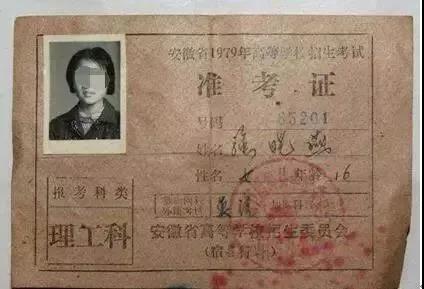 安徽省1979年高等学校招生考试
准考证
号码 65201
姓名 张晓燕
性别 女 年龄 16
报考科类
理工科
英语
安徽省高等学校招生委员会